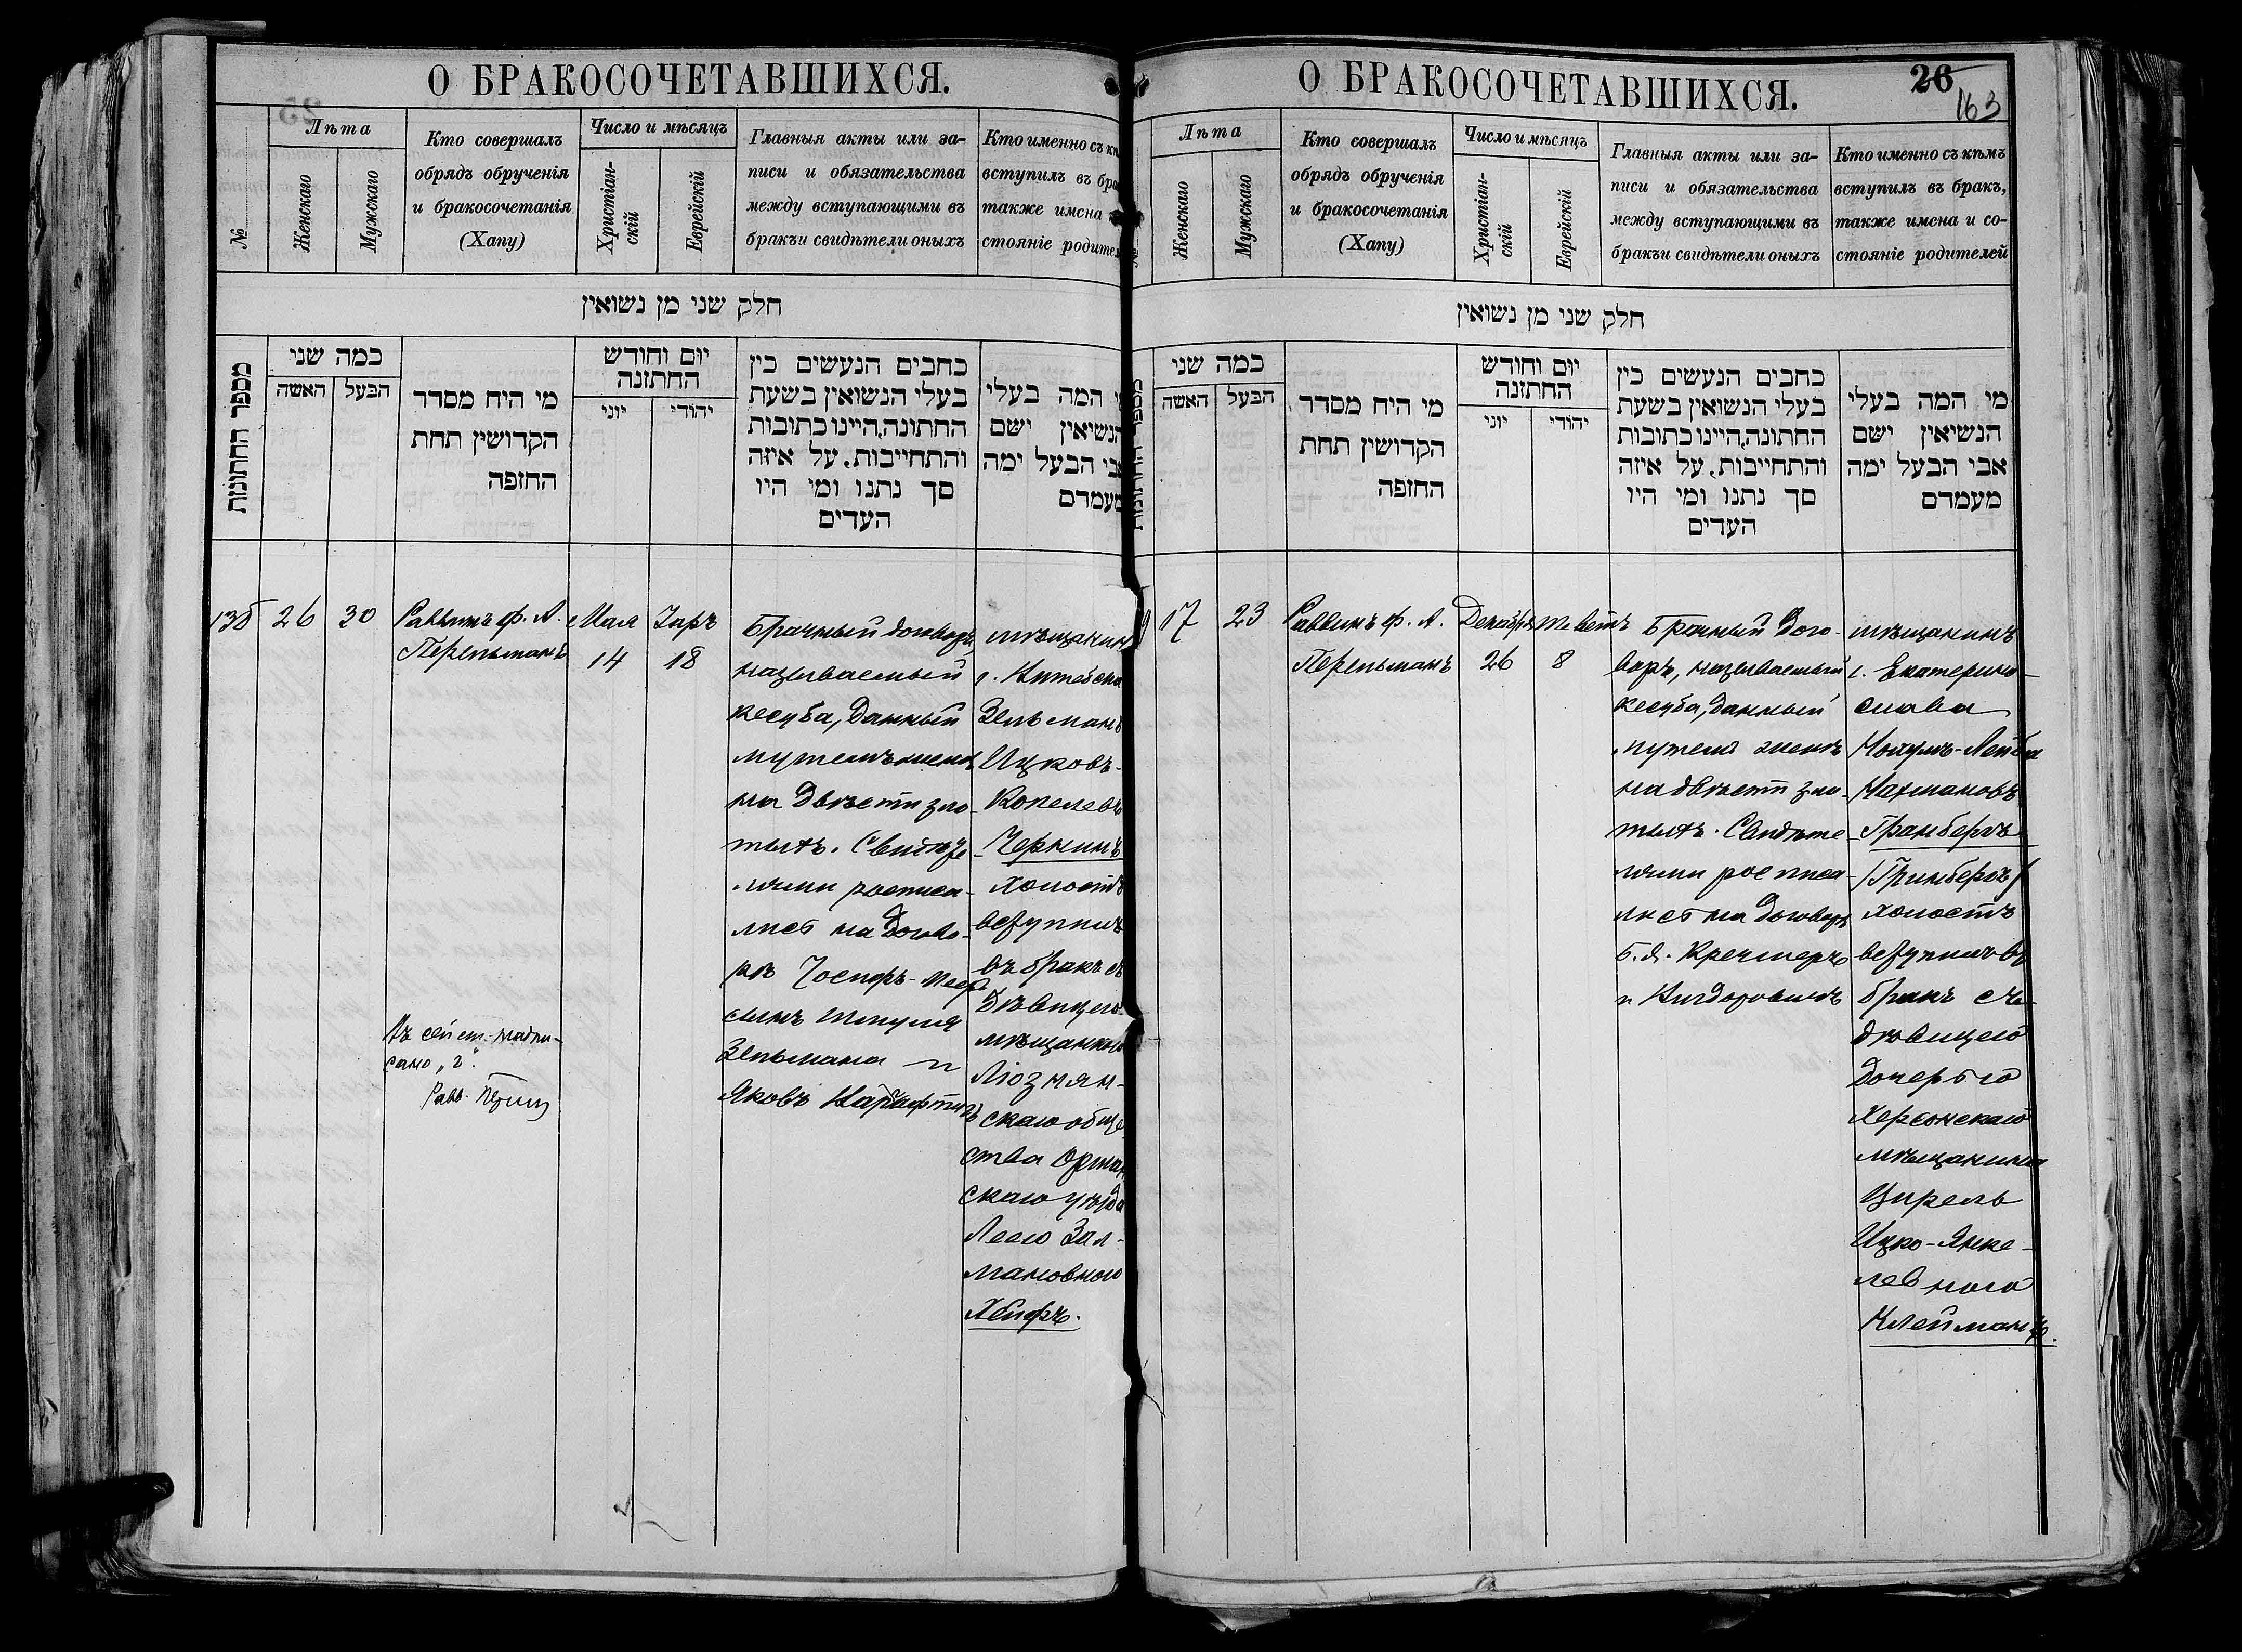 О БРАКОСОЧЕТАВШИХСЯ.
№
Лѣта
Женскаго
Мужскаго
Кто совершалъ
обрядъ обрученія
и бракосочетанія
(Хапу)
Число и мѣсяцъ
Христіан-
скій
Еврейскій
Главныя акты или за-
писи и обязательства
между вступающими въ
бракъи свидѣтели оныхъ
Кто именно съ
вступилъ въ
также имена
стояніе
חלק שני מן נשואין
מספר החתונות
כמה שני
האשה
הבעל
מי היח מסדר
הקדושין תחת
החופה
יום וחודש
החתונה
יוני
יהודי
כתבים הנעשים בין
בעלי הנשואין בשעת
החתונה,היינו כתובות
והתחייבות, על איזה
סך נתנו ומי היו
העדים
המה בעלי
הנשיאין ישם
אבי הבעל ימה
מעמדם
26
30
Раввинъ Ф. А.
Перельманъ
Мая
14
Іаръ
18
Брачный договоръ,
называемый
кесуба, данный
мужемъ женѣ
на двѣсти зло-
тыхъ. Свидѣте-
лями расписа-
лись на догово-
рѣ Іосифъ-Меер
сынъ Шмуля
Зельмана и
Яковъ
Мѣщанинъ
г. Витебска
Зельманъ
Ицковъ-
Копелевъ
Чернинъ
холостъ
вступилъ
въ бракъ съ
дѣвицею
мѣщанкою
Лізнян-
скаго обще
ства Оршан
скаго уѣзда
Леею Зал-
мановною
Хейфъ.
Въ сей ст. надпи-
сано „г“.
Равв.
О БРАКОСОЧЕТАВШИХСЯ.
26
163
Лѣта
Женскаго
Мужскаго
Кто совершалъ
обрядъ обрученія
и бракосочетанія
(Хапу)
Число и мѣсяцъ
Христіан-
скій
Еврейскій
Главныя акты или за-
писи и обязательства
между вступающими въ
бракъи свидѣтели оныхъ
Кто именно съ кѣмъ
вступилъ въ бракъ,
также имена и со-
стояніе родителей
חלק שני מן נשואין
כמה שני
האשה
הבעל
מי היח מסדר
הקדושין תחת
החופה
יום וחודש
החתונה
יוני
יהודי
כתבים הנעשים בין
בעלי הנשואין בשעת
החתונה,היינו כתובות
והתחייבות, על איזה
סך נתנו ומי היו
העדים
מי המה בעלי
הנשיאין ישם
אבי הבעל ימה
מעמדם
17
23
Раввинъ Ф. А.
Перельманъ
Декабря
26
Теветъ
8
Брачный дого-
воръ, называемый
кесуба, данный
мужемъ женѣ
на двѣсти зло-
тыхъ. Свидѣте-
лями росписа-
лись на договорѣ
Б. Я. Кречмеръ
и Вигдоровичъ
Мѣщанинъ
г. Екатерино-
слава
Нохумъ-Лейба
Нахмановъ
Гранбергъ
/Гринбергъ/
холостъ
вступилъ въ
бракъ съ
дѣвицею
дочерью
Херсонскаго
мѣщанина
Цирель
Ицко-Янке-
левною
Клейманъ.